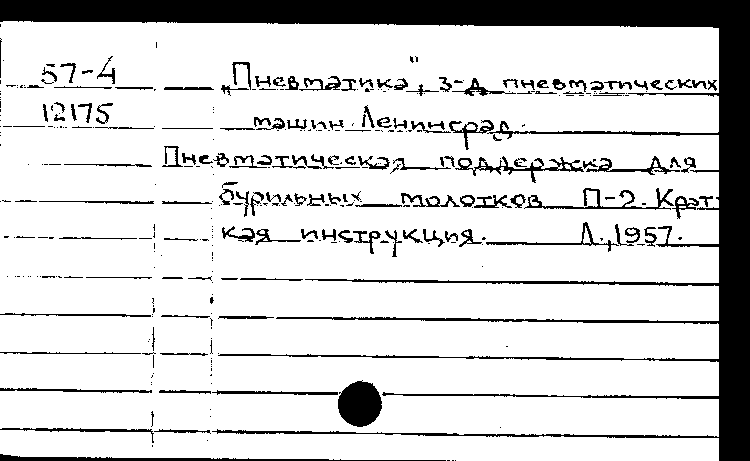 57-4 „Пневматика", з-д пневматических
12175 машин. Ленинград.
Пневматическая поддержка для
бурильных молотков П-2. Крат-
кая инструкция. Л., 1957.